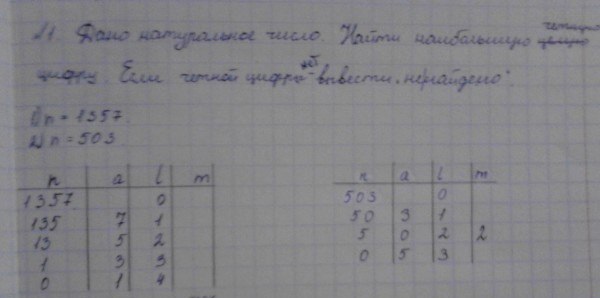 №1. Дано натуральное число. Найти наибольшую четную
цифру. Если четной цифры нет - вывести "не найдено".
1) n = 1357
2) n = 503
n a l m
1357 0
135 7 1
13 5 2
1 3 3
0 1 4
n a l m
503 0
50 3 1
5 0 2 2
0 5 3